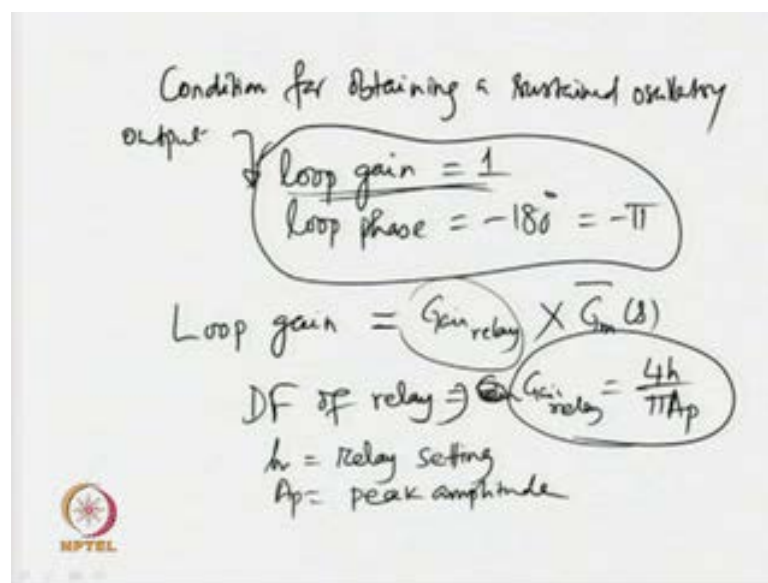 Condition for obtaining a sustained oscillatory
output
loop gain = 1
loop phase = -180° = -π
Loop gain = Gain relay × G̅m(s)
DF of relay ⇒ Gain relay = 4h/πAp
h = Relay setting
Ap = peak amplitude
NPTEL